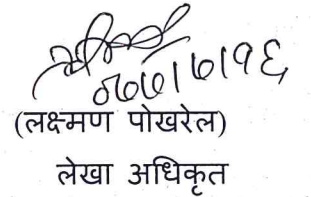 ०७७।७।१६
(लक्ष्मण पोखरेल)
लेखा अधिकृत